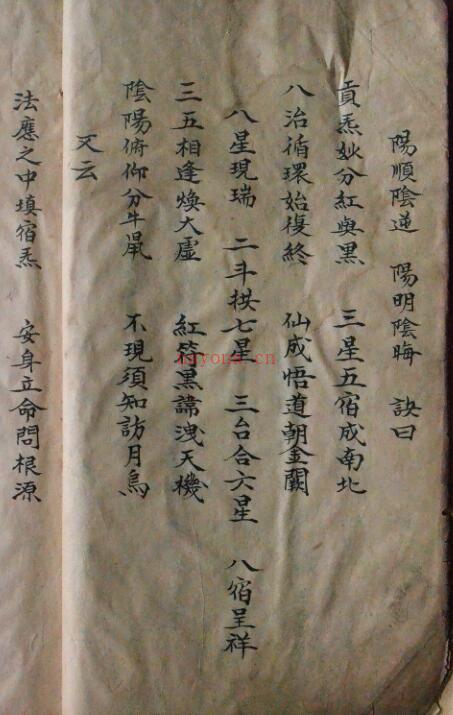 陽順陰逆　陽明陰晦　訣曰
炁妙分紅與黑　三星五宿成南北
八治循環始復終　仙成悟道朝金闕
八星現瑞　二斗拱七星　三台合六星　八宿呈祥
三五相逢煥大虛　紅符黑諱洩天機
陰陽俯仰分牛鼠　不現須知訪月烏
又云
法應之中填宿炁　安身立命問根源